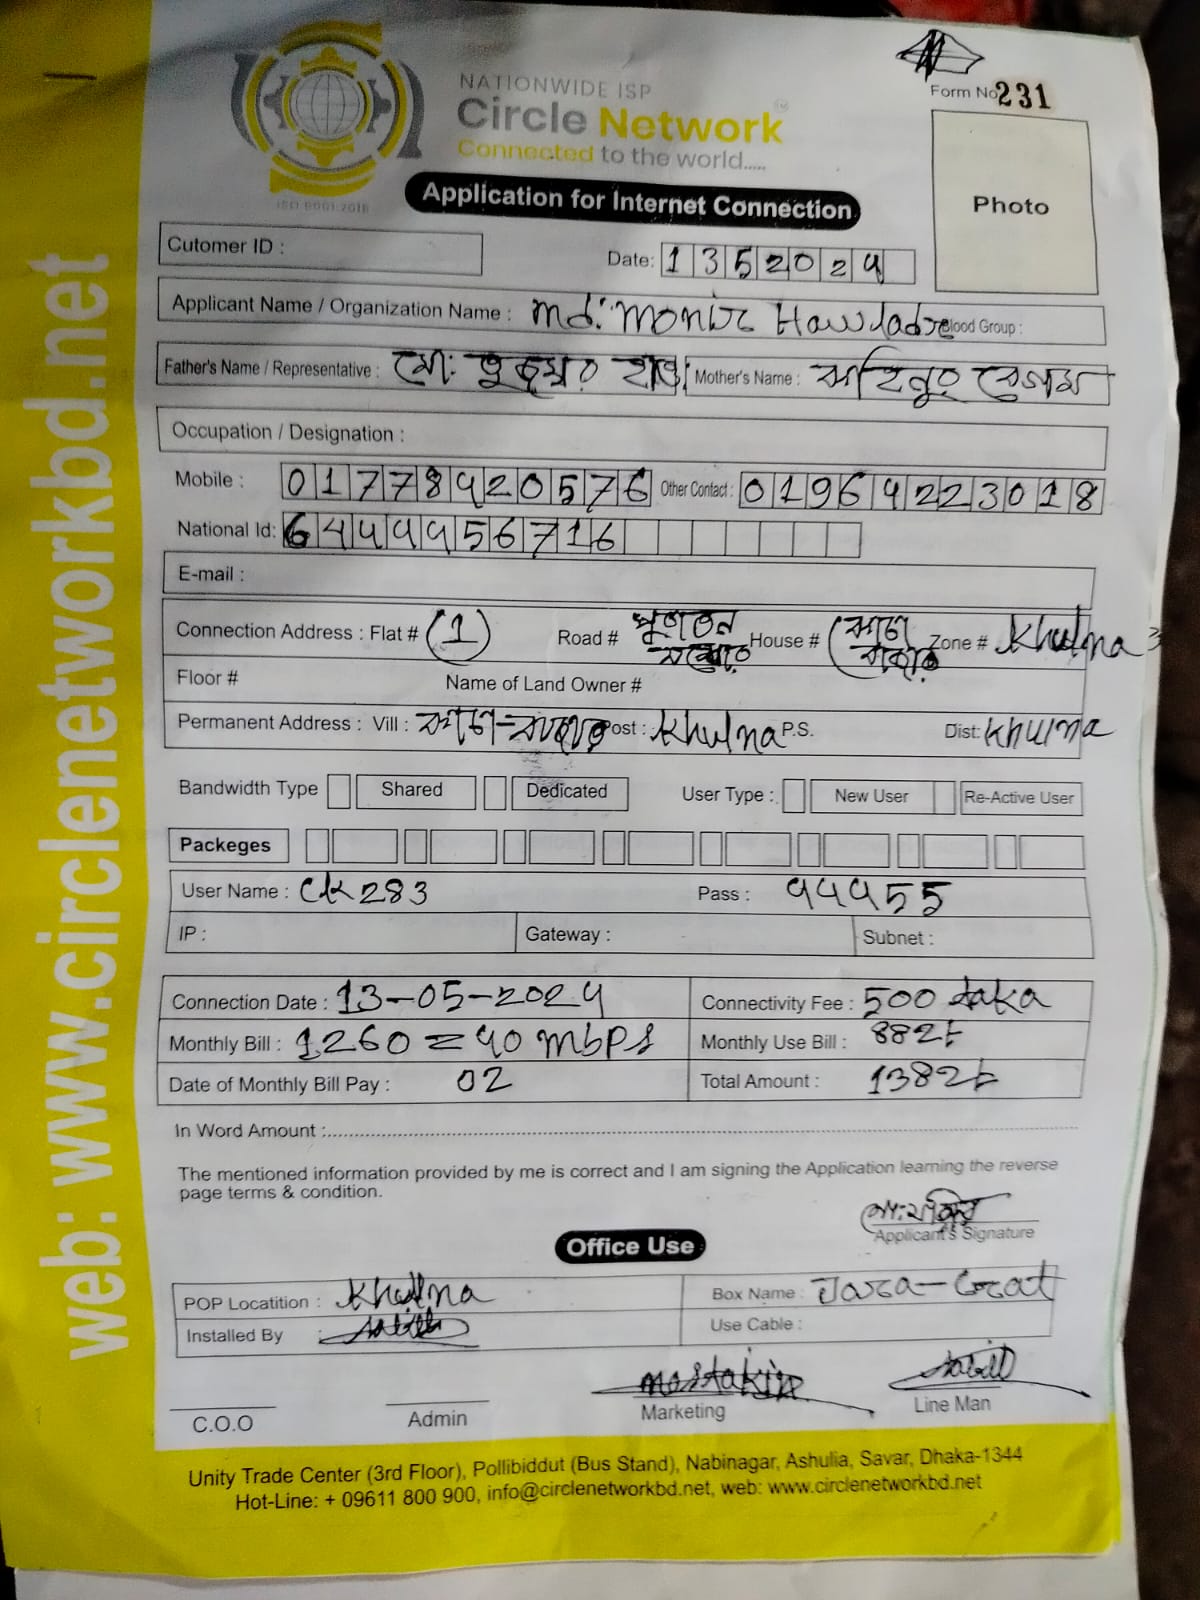 NATIONWIDE ISP
Circle Network
Connected to the world.....
ISO 9001:2015
Form No 231
Photo
Application for Internet Connection
Cutomer ID :
Date: 13 5 2024
Applicant Name / Organization Name : Md: Monir Hawlader Blood Group :
Father's Name / Representative : মোঃ Mother's Name : বেগম
Occupation / Designation :
Mobile : 01778920576 Other Contact : 01964223018
National Id: 6444956716
E-mail :
Connection Address : Flat # (1) Road # পুরাতন House # Zone # Khulna
Floor # Name of Land Owner #
Permanent Address : Vill : Post : Khulna P.S. Dist: Khulna
Bandwidth Type Shared Dedicated User Type : New User Re-Active User
Packeges
User Name : CK283 Pass : 44455
IP : Gateway : Subnet :
Connection Date : 13-05-2024 Connectivity Fee : 500 taka
Monthly Bill : 1260 = 40 mbps Monthly Use Bill : 882/-
Date of Monthly Bill Pay : 02 Total Amount : 1382/-
In Word Amount :
The mentioned information provided by me is correct and I am signing the Application learning the reverse
page terms & condition.
Applicant's Signature
Office Use
POP Locatition : Khulna Box Name :
Installed By Use Cable :
C.O.O Admin Marketing Line Man
Unity Trade Center (3rd Floor), Pollibiddut (Bus Stand), Nabinagar, Ashulia, Savar, Dhaka-1344
Hot-Line: + 09611 800 900, info@circlenetworkbd.net, web: www.circlenetworkbd.net
web: www.circlenetworkbd.net